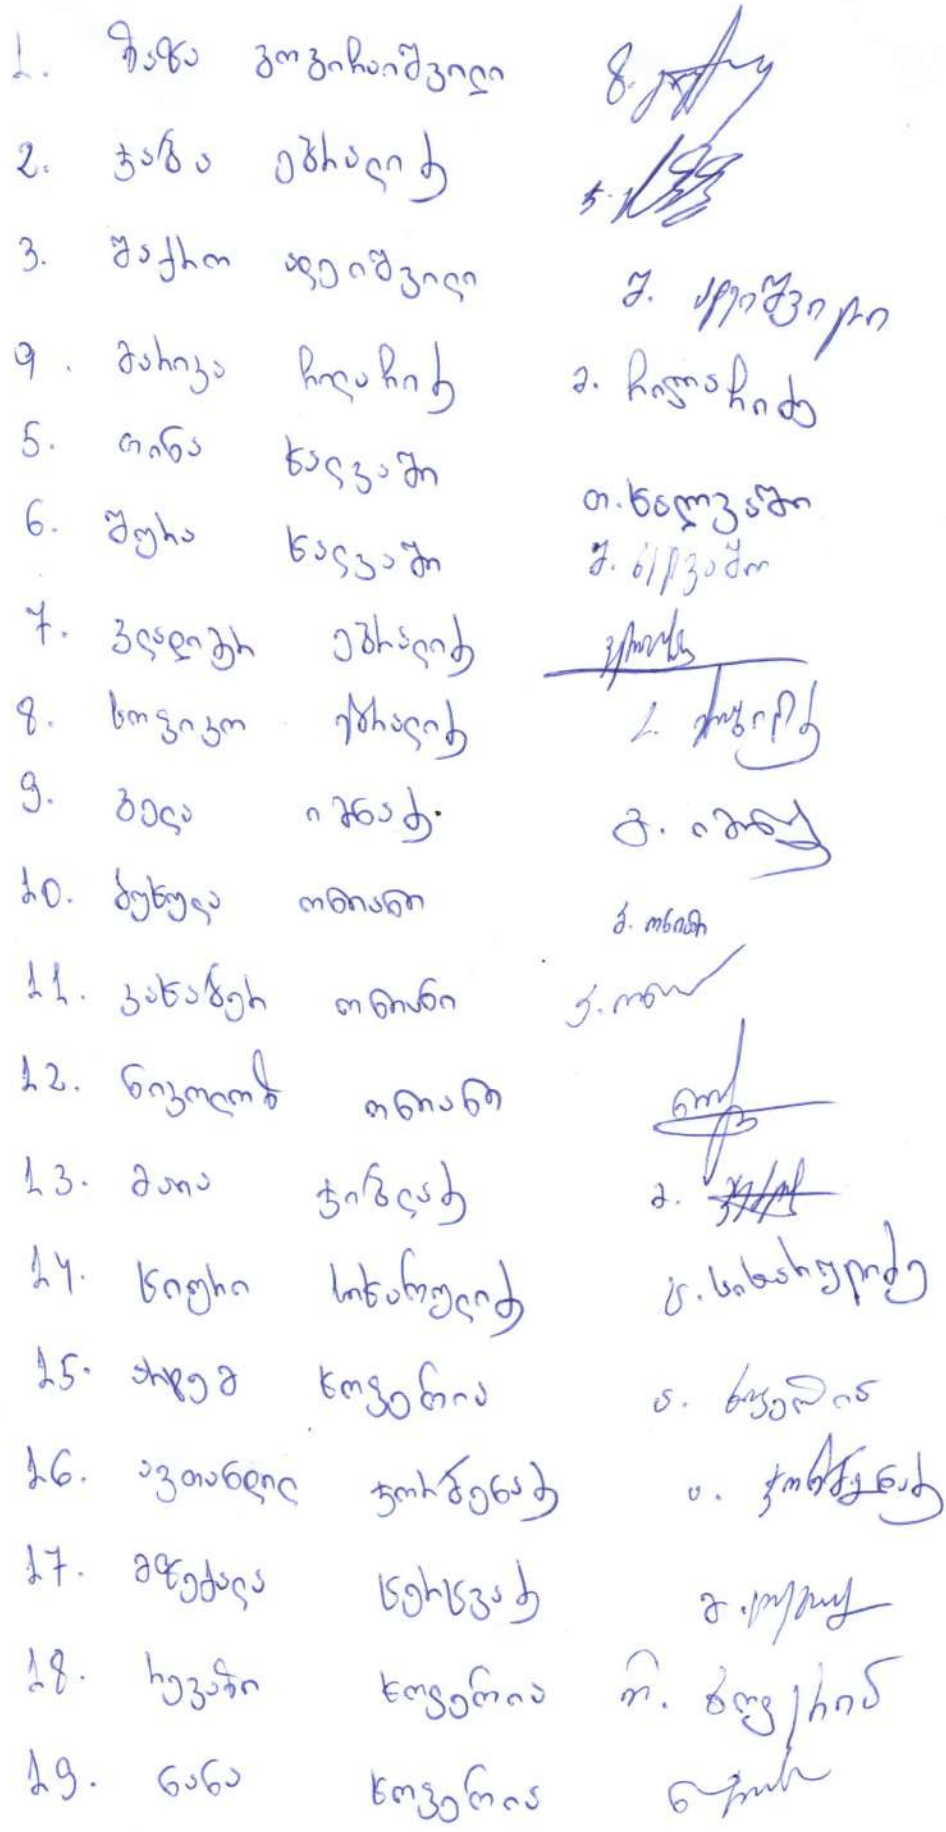 1. ზაზა გოგიჩაიშვილი
2. ჯაბა ებრალიძე
3. შაქრო ადეიშვილი მ. ადეიშვილი
4. მარიკა ჩილაჩიძე მ. ჩილაჩიძე
5. თინა ხალვაში თ. ხალვაში
6. შურა ხალვაში შ. ხალვაში
7. ვლადიმერ ებრალიძე
8. სოფიკო ებრალიძე
9. ბელა იმნაძე ბ. იმნაძე
10. ბუხულა ონიანი ბ. ონიანი
11. კახაბერ ონიანი
12. ნიკოლოზ ონიანი
13. მაია ჯიბლაძე მ.
14. წიური სიხარულიძე წ. სიხარულიძე
15. არტემ ხოფერია ა. ხოფერია
16. ავთანდილ ჯორბენაძე ა. ჯორბენაძე
17. მზექალა წერცვაძე მ.
18. რევაზი ხოფერია რ. ხოფერია
19. ნანა ხოფერია